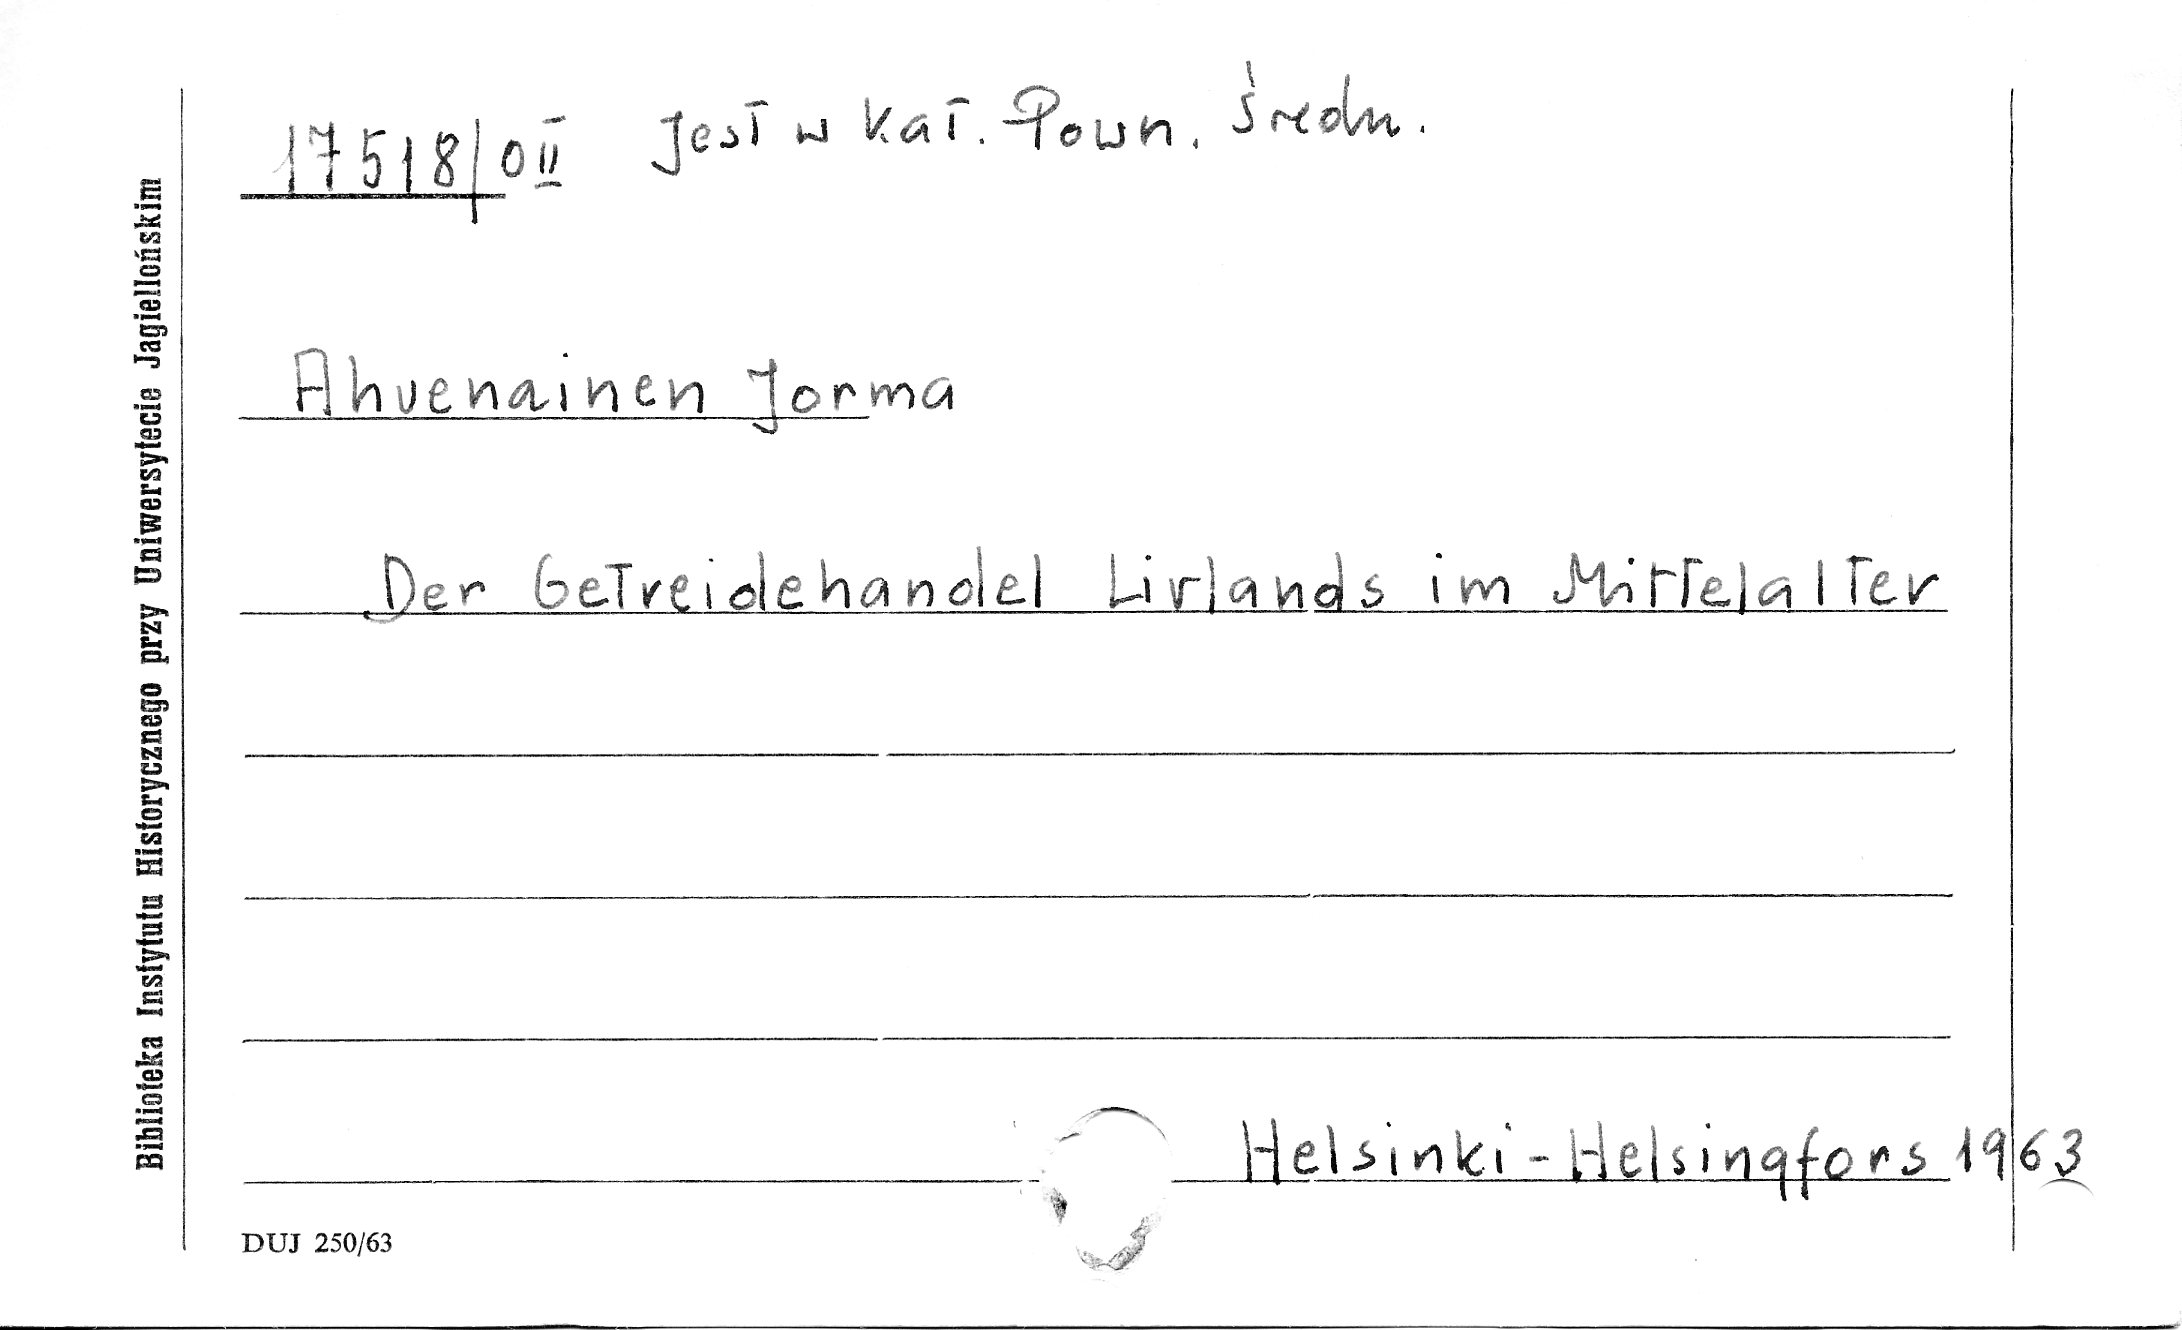 17518/0II Jest w Kat. Pown. Średn.
Ahvenainen Jorma
Der Getreidehandel Livlands im Mittelalter
Helsinki-Helsingfors 1963
DUJ 250/63
Biblioteka Instytutu Historycznego przy Uniwersytecie Jagiellońskim